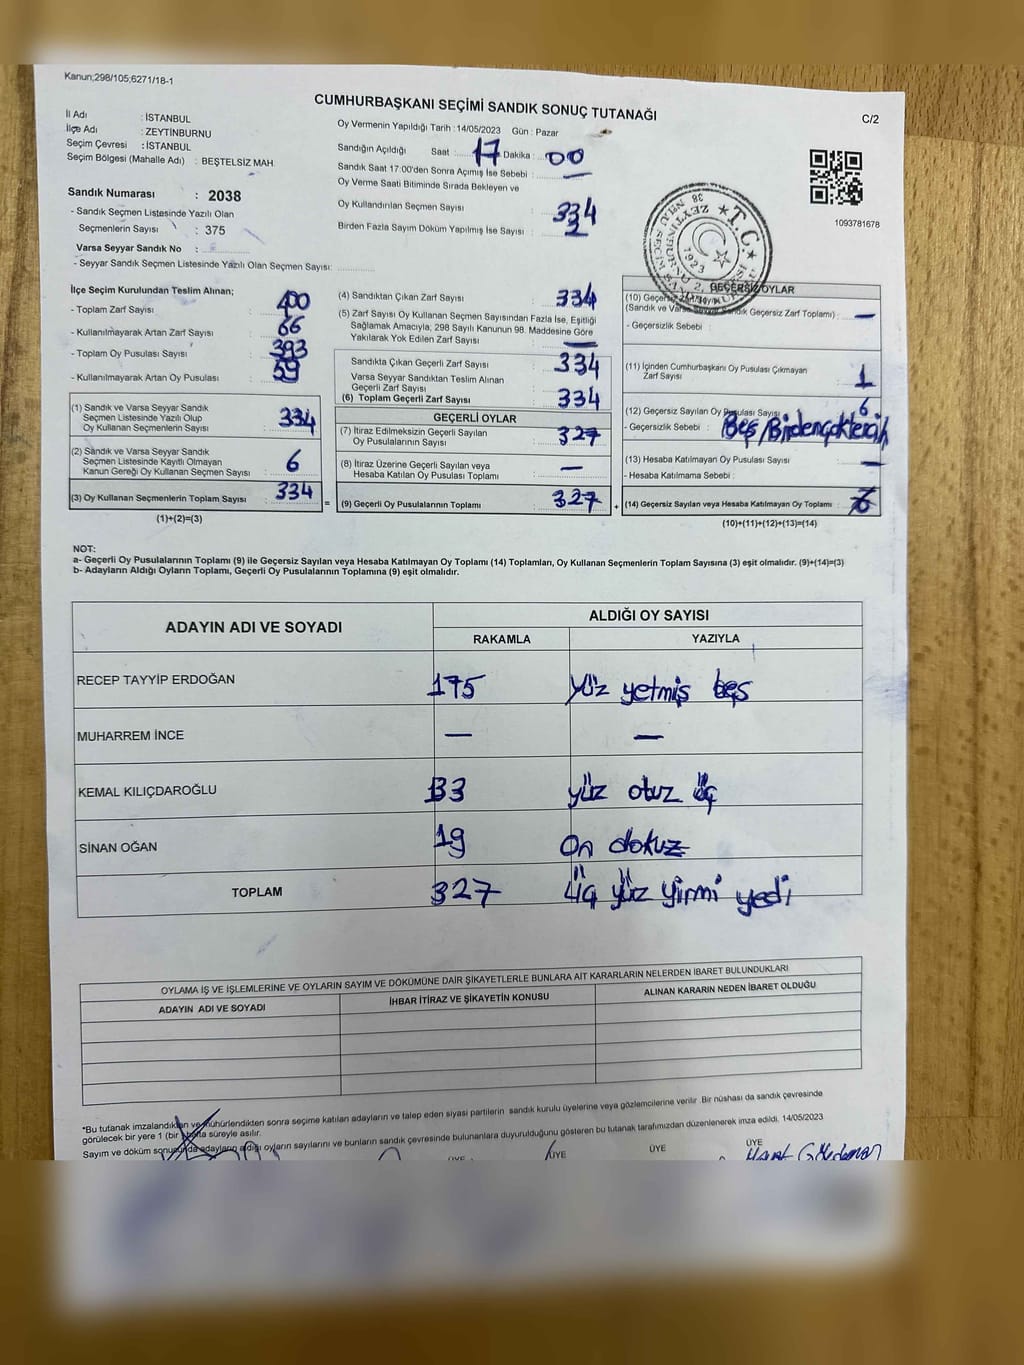 Kanun;298/105;6271/18-1
CUMHURBAŞKANI SEÇİMİ SANDIK SONUÇ TUTANAĞI
C/2
İl Adı : İSTANBUL
İlçe Adı : ZEYTİNBURNU
Seçim Çevresi : İSTANBUL
Seçim Bölgesi (Mahalle Adı) : BEŞTELSİZ MAH.
Sandık Numarası : 2038
- Sandık Seçmen Listesinde Yazılı Olan
Seçmenlerin Sayısı : 375
Varsa Seyyar Sandık No :
- Seyyar Sandık Seçmen Listesinde Yazılı Olan Seçmen Sayısı:
Oy Vermenin Yapıldığı Tarih : 14/05/2023 Gün : Pazar
Sandığın Açıldığı Saat : 17 Dakika : 00
Sandık Saat 17:00'den Sonra Açımış İse Sebebi : —
Oy Verme Saati Bitiminde Sırada Bekleyen ve
Oy Kullandırılan Seçmen Sayısı : 334
Birden Fazla Sayım Döküm Yapılmış İse Sayısı : 2
1093781678
T.C.
1923
İlçe Seçim Kurulundan Teslim Alınan;
- Toplam Zarf Sayısı : 400
- Kullanılmayarak Artan Zarf Sayısı : 66
- Toplam Oy Pusulası Sayısı : 393
- Kullanılmayarak Artan Oy Pusulası : 59
(1) Sandık ve Varsa Seyyar Sandık
Seçmen Listesinde Yazılı Olup
Oy Kullanan Seçmenlerin Sayısı : 334
(2) Sandık ve Varsa Seyyar Sandık
Seçmen Listesinde Kayıtlı Olmayan
Kanun Gereği Oy Kullanan Seçmen Sayısı : 6
(3) Oy Kullanan Seçmenlerin Toplam Sayısı : 334
(1)+(2)=(3)
=
(4) Sandıktan Çıkan Zarf Sayısı : 334
(5) Zarf Sayısı Oy Kullanan Seçmen Sayısından Fazla İse, Eşitliği
Sağlamak Amacıyla, 298 Sayılı Kanunun 98. Maddesine Göre
Yakılarak Yok Edilen Zarf Sayısı : —
Sandıkta Çıkan Geçerli Zarf Sayısı : 334
Varsa Seyyar Sandıktan Teslim Alınan
Geçerli Zarf Sayısı
(6) Toplam Geçerli Zarf Sayısı : 334
GEÇERLİ OYLAR
(7) İtiraz Edilmeksizin Geçerli Sayılan
Oy Pusulalarının Sayısı : 327
(8) İtiraz Üzerine Geçerli Sayılan veya
Hesaba Katılan Oy Pusulası Toplamı : —
(9) Geçerli Oy Pusulalarının Toplamı : 327
+
GEÇERSİZ OYLAR
(10) Geçersiz Zarf Sayısı
(Sandık ve Varsa Seyyar Sandık Geçersiz Zarf Toplamı) : —
- Geçersizlik Sebebi :
(11) İçinden Cumhurbaşkanı Oy Pusulası Çıkmayan
Zarf Sayısı : 1
(12) Geçersiz Sayılan Oy Pusulası Sayısı : 6
- Geçersizlik Sebebi : Boş/Birdençoktercih
(13) Hesaba Katılmayan Oy Pusulası Sayısı : —
- Hesaba Katılmama Sebebi :
(14) Geçersiz Sayılan veya Hesaba Katılmayan Oy Toplamı :
(10)+(11)+(12)+(13)=(14)
NOT:
a- Geçerli Oy Pusulalarının Toplamı (9) ile Geçersiz Sayılan veya Hesaba Katılmayan Oy Toplamı (14) Toplamları, Oy Kullanan Seçmenlerin Toplam Sayısına (3) eşit olmalıdır. (9)+(14)=(3)
b- Adayların Aldığı Oyların Toplamı, Geçerli Oy Pusulalarının Toplamına (9) eşit olmalıdır.
ADAYIN ADI VE SOYADI
ALDIĞI OY SAYISI
RAKAMLA YAZIYLA
RECEP TAYYİP ERDOĞAN 175 yüz yetmiş beş
MUHARREM İNCE — —
KEMAL KILIÇDAROĞLU 133 yüz otuz üç
SİNAN OĞAN 19 On dokuz
TOPLAM 327 üç yüz yirmi yedi
OYLAMA İŞ VE İŞLEMLERİNE VE OYLARIN SAYIM VE DÖKÜMÜNE DAİR ŞİKAYETLERLE BUNLARA AİT KARARLARIN NELERDEN İBARET BULUNDUKLARI
ADAYIN ADI VE SOYADI İHBAR İTİRAZ VE ŞİKAYETİN KONUSU ALINAN KARARIN NEDEN İBARET OLDUĞU
*Bu tutanak imzalandıktan ve mühürlendikten sonra seçime katılan adayların ve talep eden siyasi partilerin sandık kurulu üyelerine veya gözlemcilerine verilir .Bir nüshası da sandık çevresinde
görülecek bir yere 1 (bir) hafta süreyle asılır.
Sayım ve döküm sonucunda adayların aldığı oyların sayılarını ve bunların sandık çevresinde bulunanlara duyurulduğunu gösteren bu tutanak tarafımızdan düzenlenerek imza edildi. 14/05/2023
ÜYE ÜYE ÜYE ÜYE